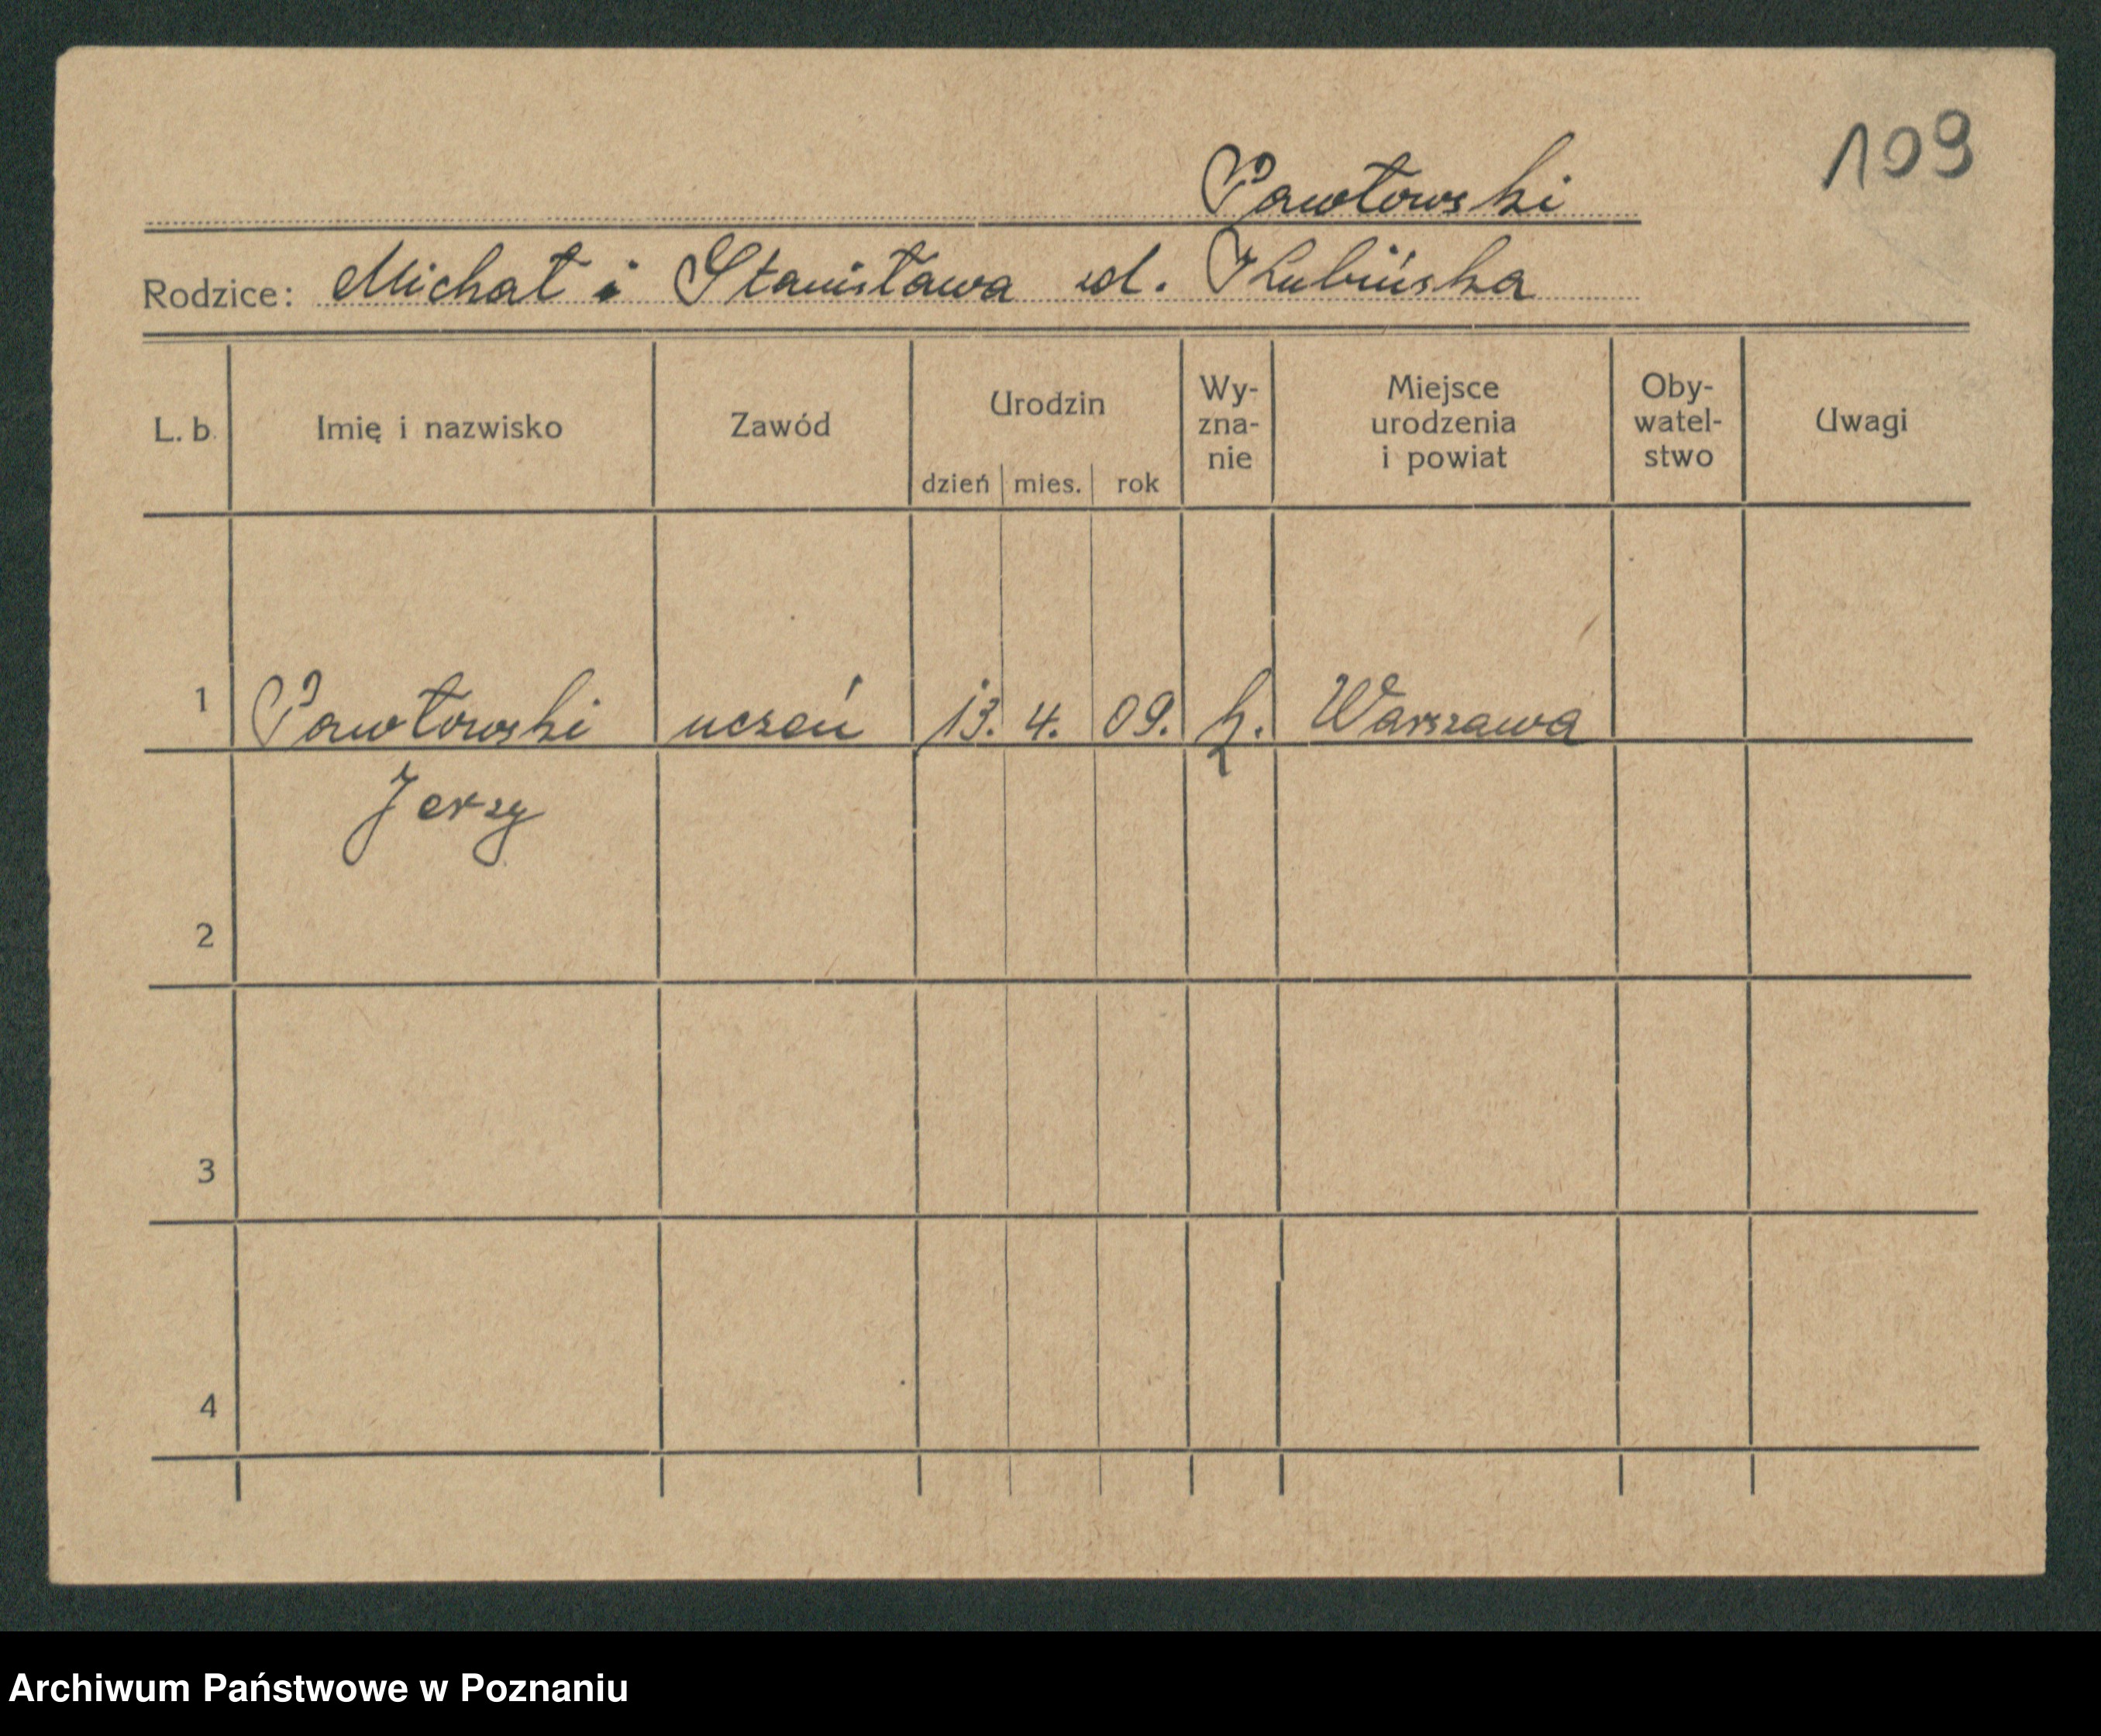 109
Pawłowski
Rodzice: Michał i Stanisława zd. Kubińska
L. b. Imię i nazwisko Zawód Urodzin dzień mies. rok Wy-zna-nie Miejsce urodzenia i powiat Oby-watel-stwo Uwagi
1 Pawłowski uczeń 13. 4. 09. k. Warszawa
Jerzy
2
3
4
Archiwum Państwowe w Poznaniu